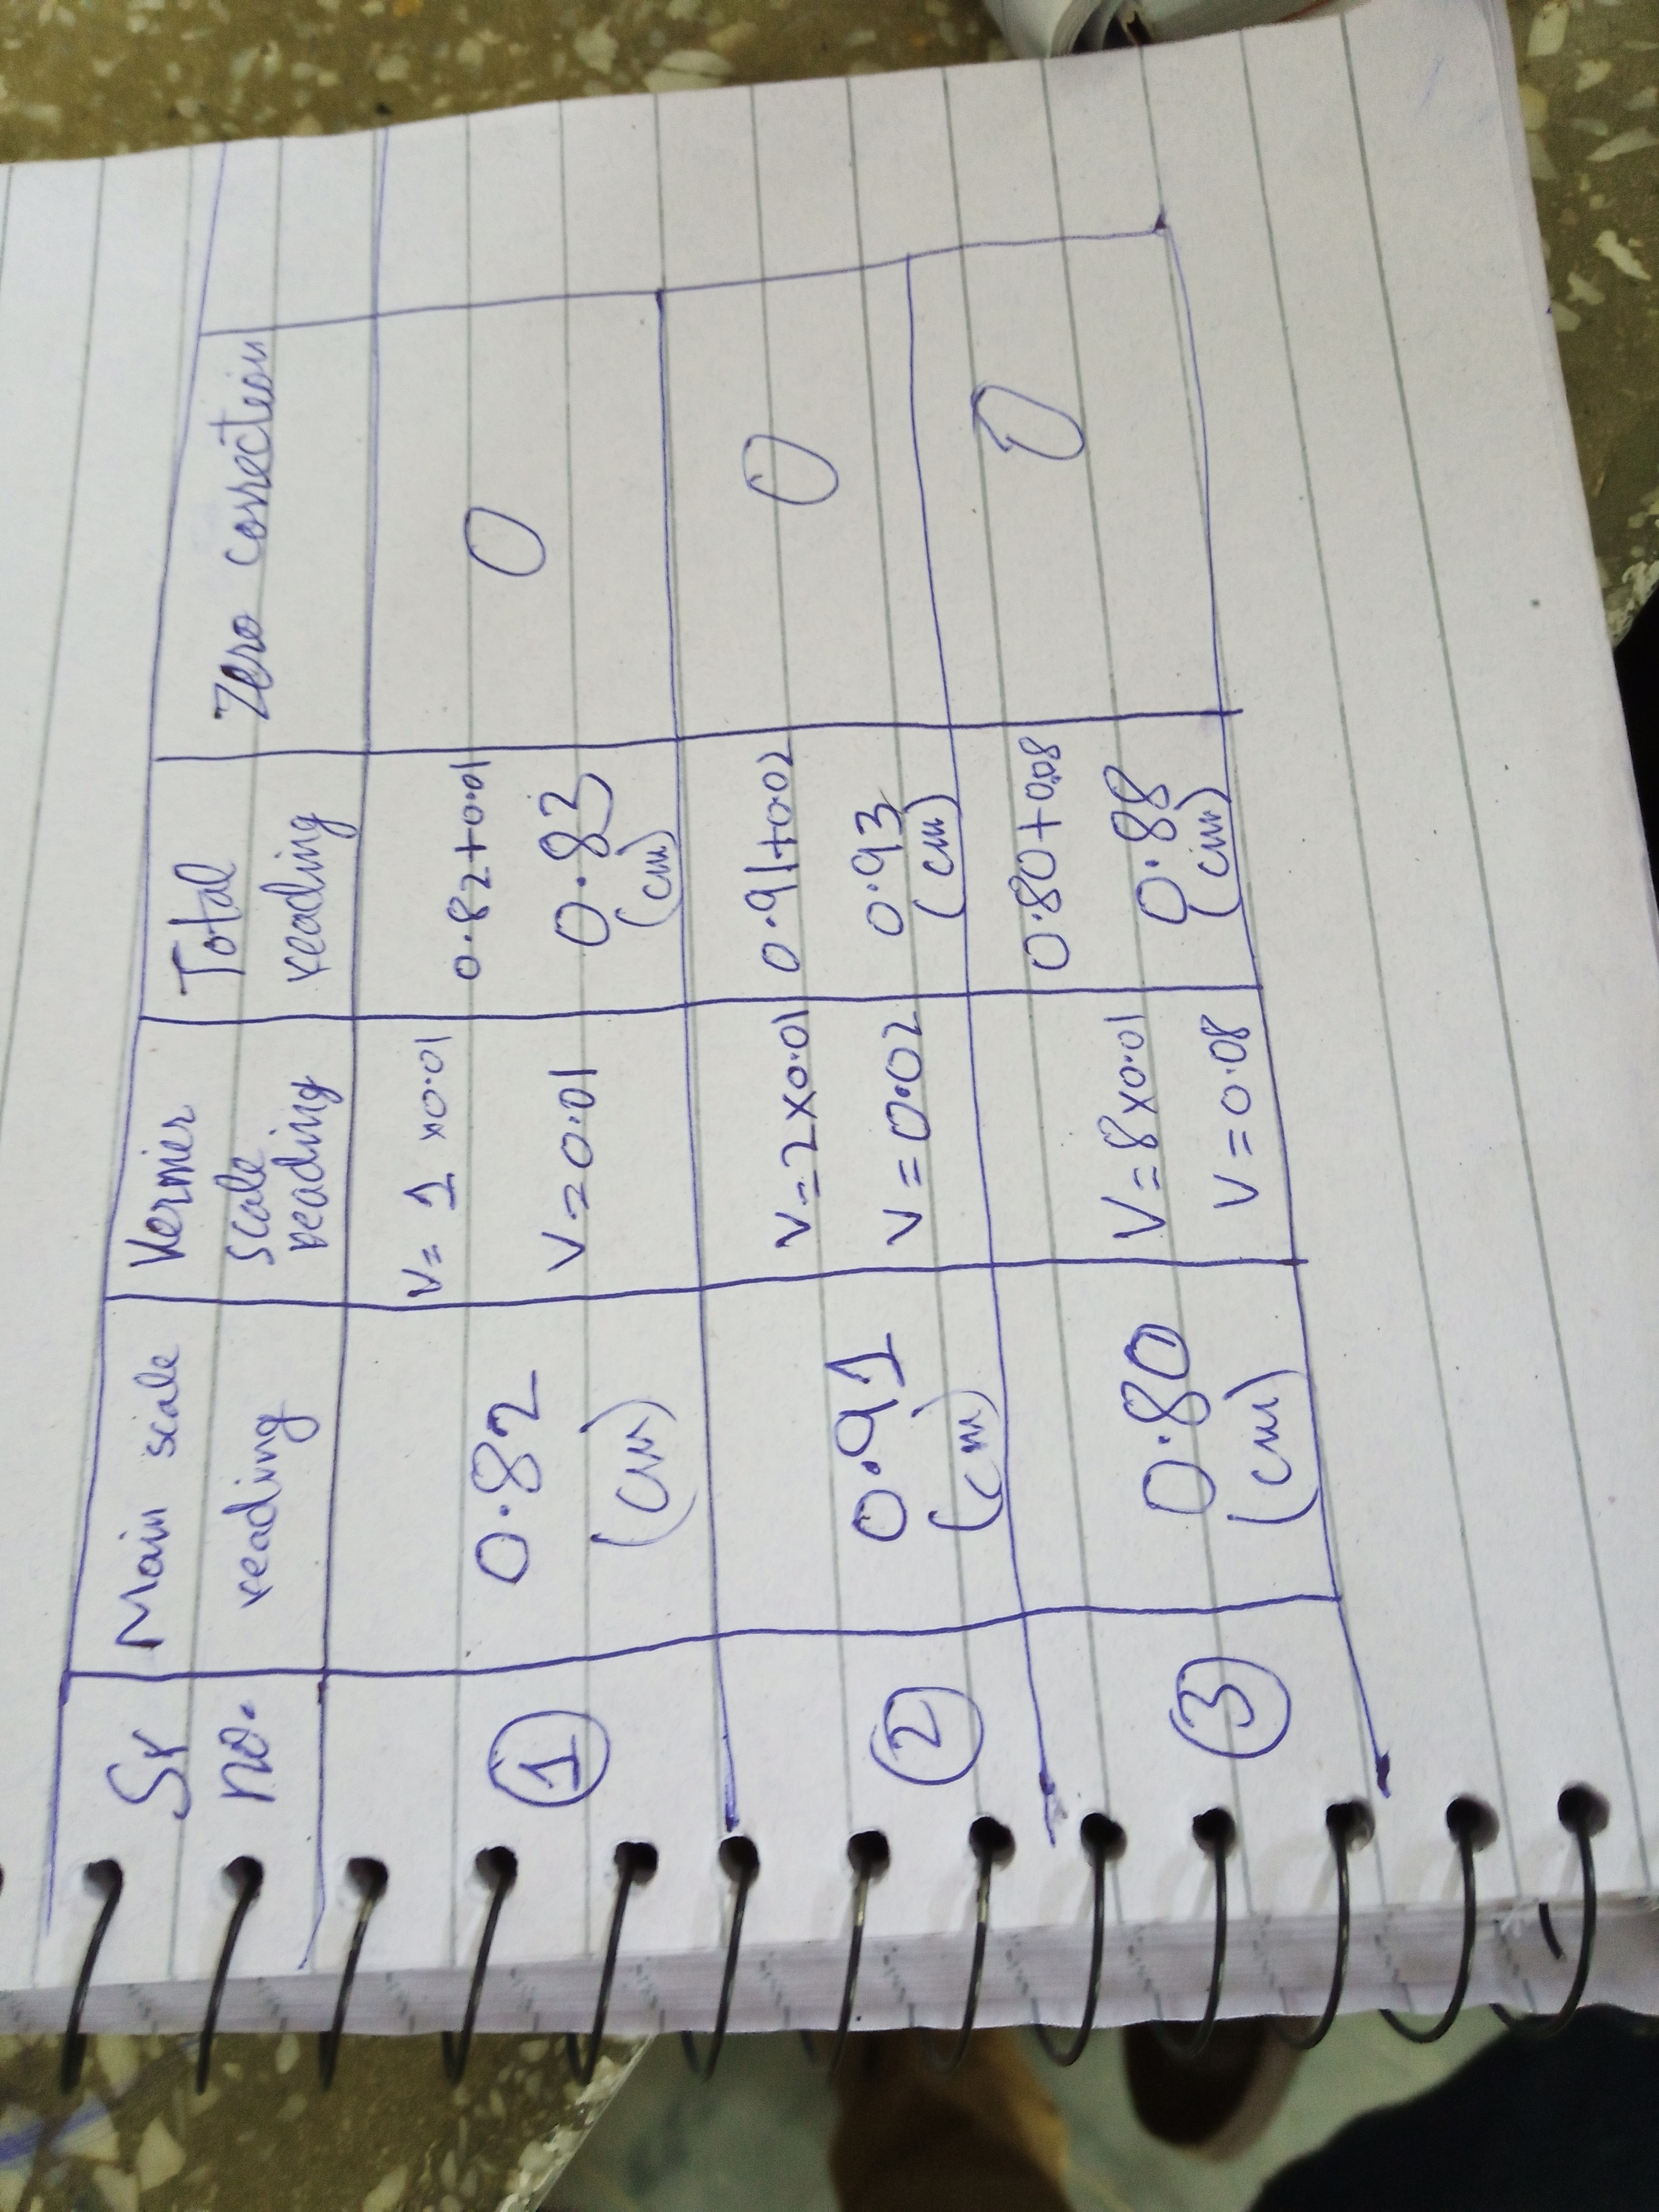 Sr no.
Main scale reading
Vernier scale reading
Total reading
Zero correction
1
0.82
(cm)
V= 1 ×0.01
V=0.01
0.82+0.01
0.83
(cm)
0
2
0.91
(cm)
V=2×0.01
V=0.02
0.91+0.02
0.93
(cm)
0
3
0.80
(cm)
V=8×0.01
V=0.08
0.80+0.08
0.88
(cm)
0